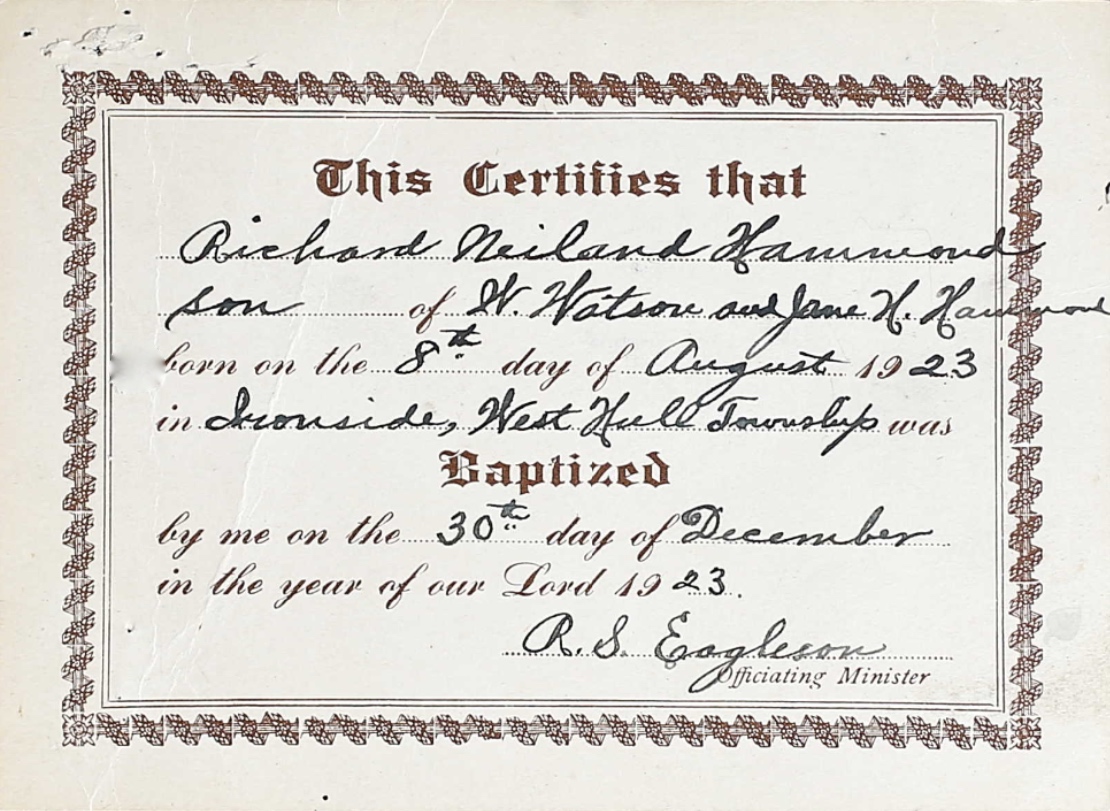 This Certifies that
Richard Neiland Hammond
son of W. Watson and Jane H. Hammond
born on the 8th day of August 1923
in Ironside, West Hull Township was
Baptized
by me on the 30th day of December
in the year of our Lord 1923.
R. S. Eagleson
Officiating Minister